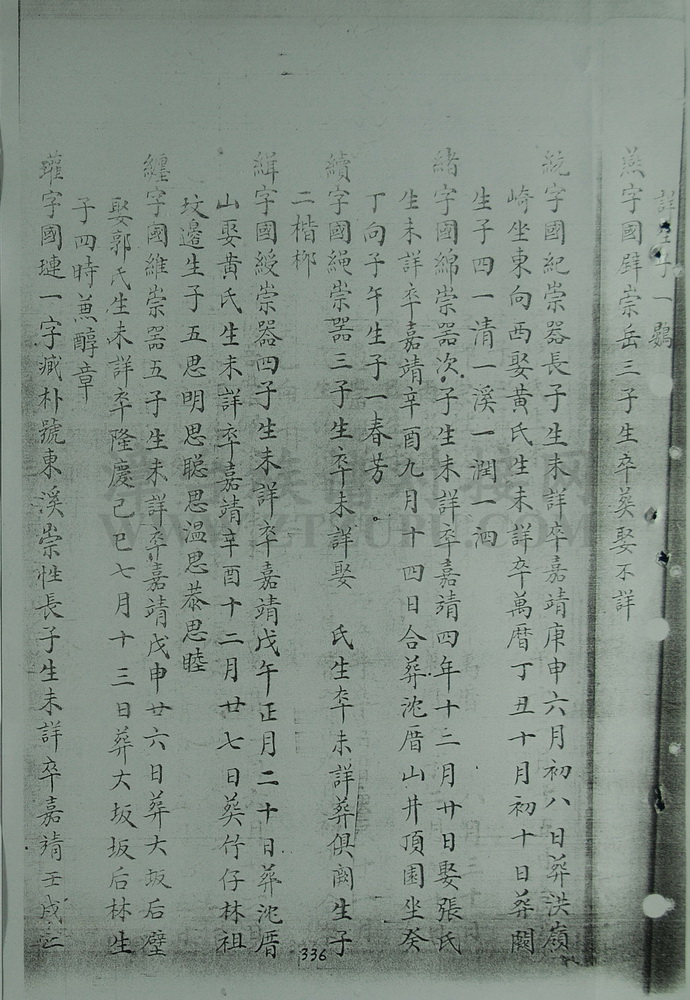 詳生子一鶚
燕字國肆崇岳三子生卒葬娶不詳
統字國紀崇器長子生未詳卒嘉靖庚申六月初八日葬洪嶺
崎坐東向西娶黃氏生未詳卒萬曆丁丑十月初十日葬闕
生子四一清一溪一潤一泗
緒字國綿崇器次子生未詳卒嘉靖四年十二月廿日娶張氏
生未詳卒嘉靖辛酉九月十四日合葬沈厝山井頂園坐癸
丁向子午生子一春芳
續字國繩崇器三子生卒未詳娶 氏生卒未詳葬俱闕生子
二楷栁
緝字國綬崇器四子生未詳卒嘉靖戊午正月二十日葬沈厝
山娶黃氏生未詳卒嘉靖辛酉十二月廿七日葬竹仔林祖
坟邉生子五思明思聡思温思恭思睦
纏字國維崇器五子生未詳卒嘉靖戊申廿六日葬大坂后壁
娶郭氏生未詳卒隆慶己巳七月十三日葬大坂坂后林生
子四時薫醇章
瓘字國璉一字臧朴號東溪崇性長子生未詳卒嘉靖壬戌
336